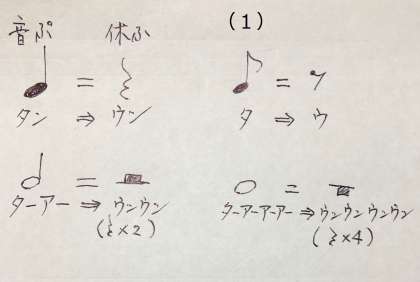 音ぷ 休ふ (1)
= =
タン ⇒ ウン タ ⇒ ウ
= =
ターアー ⇒ ウンウン ターアーアーアー ⇒ ウンウンウンウン
(×2) (×4)